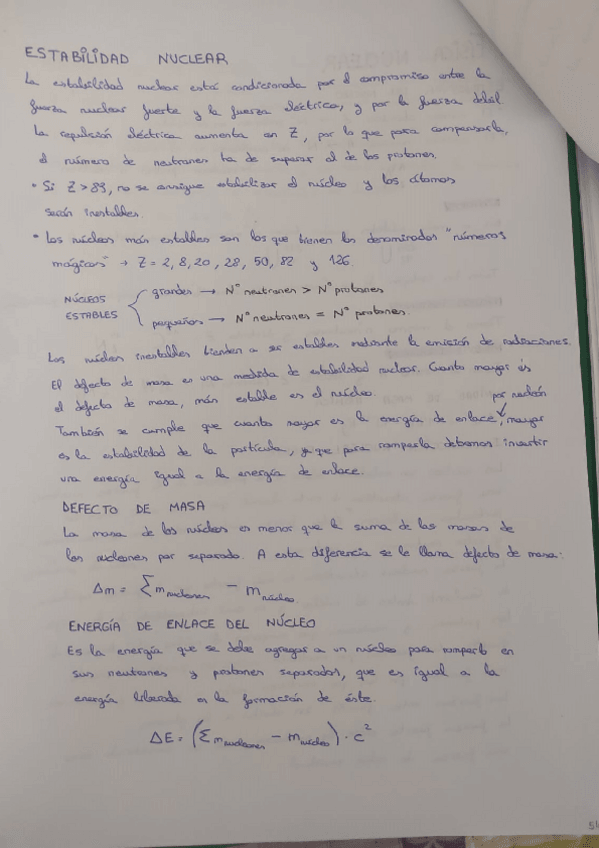 ESTABILIDAD NUCLEAR
La estabilidad nuclear está condicionada por el compromiso entre la
fuerza nuclear fuerte y la fuerza eléctrica, y por la fuerza débil.
La repulsión eléctrica aumenta con Z, por lo que para compensarla,
el número de neutrones ha de superar al de los protones.
• Si Z > 83, no se consigue estabilizar el núcleo y los átomos
serán inestables.
• Los núcleos más estables son los que tienen los denominados "números
mágicos" → Z = 2, 8, 20, 28, 50, 82 y 126.
NÚCLEOS ESTABLES { grandes → Nº neutrones > Nº protones
pequeños → Nº neutrones = Nº protones.
Los núcleos inestables tienden a ser estables mediante la emisión de radiaciones.
El defecto de masa es una medida de estabilidad nuclear. Cuanto mayor es
el defecto de masa, más estable es el núcleo.
También se cumple que cuanto mayor es la energía de enlace por nucleón, mayor
es la estabilidad de la partícula, ya que para romperla debemos invertir
una energía igual a la energía de enlace.
DEFECTO DE MASA
La masa de los núcleos es menor que la suma de las masas de
los nucleones por separado. A esta diferencia se le llama defecto de masa:
Δm = Σ m nucleones - m núcleo
ENERGÍA DE ENLACE DEL NÚCLEO
Es la energía que se debe agregar a un núcleo para romperlo en
sus neutrones y protones separados, que es igual a la
energía liberada en la formación de éste.
ΔE = (Σ m nucleones - m núcleo) · c²